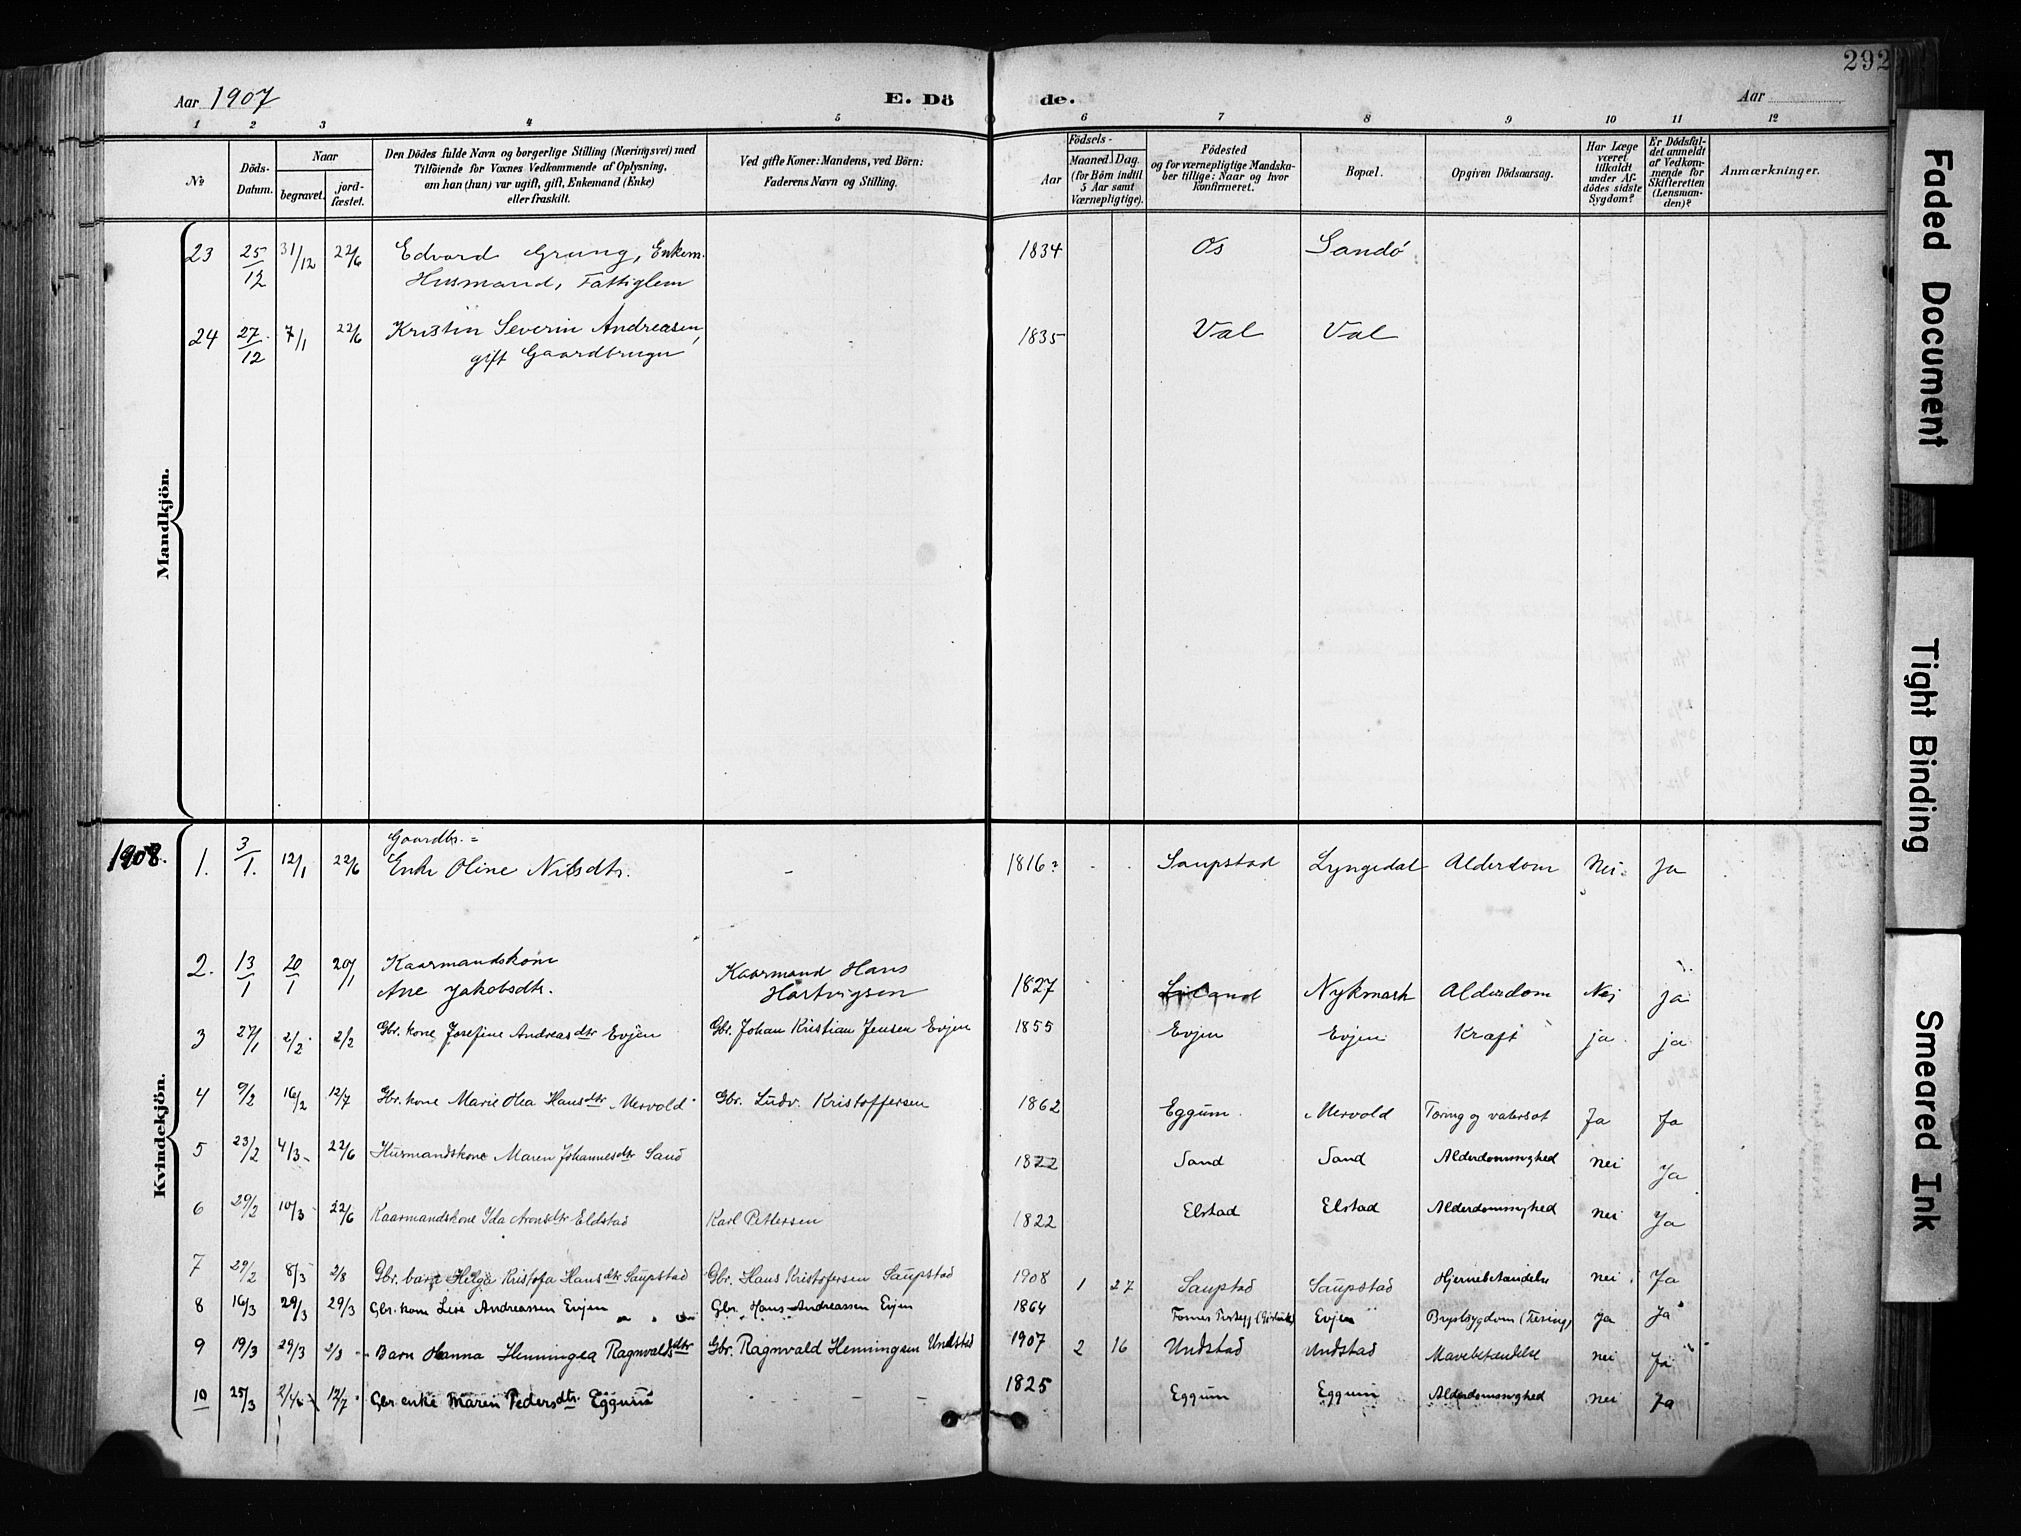 292
Aar 1907
E. Dö de.
Aar
1 2 3 4 5 6 7 8 9 10 11 12
№
Döds-Datum.
Naar
begravet.
jord-fæstet.
Den Dödes fulde Navn og borgerlige Stilling (Næringsvei) med
Tilföiende for Voxnes Vedkommende af Oplysning,
om han (hun) var ugift, gift, Enkemand (Enke)
eller fraskilt.
Ved gifte Koner: Mandens, ved Börn:
Faderens Navn og Stilling.
Födsels-
Aar
Maaned. Dag.
(for Börn indtil
5 Aar samt
Værnepligtige).
Födested
og for værnepligtige Mandska-
ber tillige: Naar og hvor
konfirmeret.
Bopæl.
Opgiven Dödsaarsag.
Har Læge
været
tilkaldt
under Af-
dödes sidste
Sygdom?
Er Dödsfal-
det anmeldt
af Vedkom-
mende for
Skifteretten
(Lensman-
den)?
Anmærkninger.
Mandkjön.
23 25/12 31/12 22/6 Edvard Grung, Enkem. 1834 Os Sandö
Husmand, Fattiglem
24 27/12 7/1 22/6 Kristin Severin Andreasen, 1835 Val Val
gift Gaardbruger
1908.
Kvindekjön.
Gaardbr. =
1. 3/1. 12/1 22/6 Enke Oline Nilsdtr. - 1816? Saupstad Lyngedal Alderdom Nei. Ja
2. 13/1 20/1 20/1 Kaarmandskone Kaarmand Hans
Ane Jakobsdtr. Hartvigsen 1827 Nykmark Alderdom Nei ja
3 27/1 2/2 2/2 Gbr. kone Josefine Andreasdtr Evjen Gbr. Johan Kristian Jensen Evjen 1855 Evjen Evjen Kræft ja. ja
4 9/2 16/2 12/7 Gbr. kone Marie Hansdtr Mervold Gbr. Ludv. Kristoffersen 1862 Eggum. Mervold Tæring og vatersot Ja Ja
5 23/2 4/3 22/6 Husmandskone Maren Johannesdtr Sand 1822 Sand Sand Alderdomssyghed Nei Ja
6 29/2 10/3 22/6 Kaarmandskone Ida Aronsdtr Eldstad Karl Pettersen 1822 Elstad Elstad Alderdomssyghed Nei Ja
7 29/2 8/3 2/8 Gbr. barn Helga Kristofa Hansdtr Saupstad Gbr. Hans Kristofersen Saupstad 1908 1 27 Saupstad Saupstad Hjernebetændelse nei Ja
8 16/3 29/3 29/3 Gbr. kone Lise Andreassen Evjen Gbr. Hans Andreassen Evjen 1864 Evjen Brystsygdom (Tæring) ja Ja
9 19/3 29/3 2/8 Barn Hanna Henningea Ragnvaldsdtr Gbr. Ragnvald Henningsen Undstad 1907 2 16 Undstad Undstad Mavebetændelse nei Ja
10 25/3 2/4 12/7 Gbr enke Maren Pedersdtr. Eggum - - - 1825 Eggum Eggum Alderdomssyghed nei Ja
Faded Document
Tight Binding
Smeared Ink